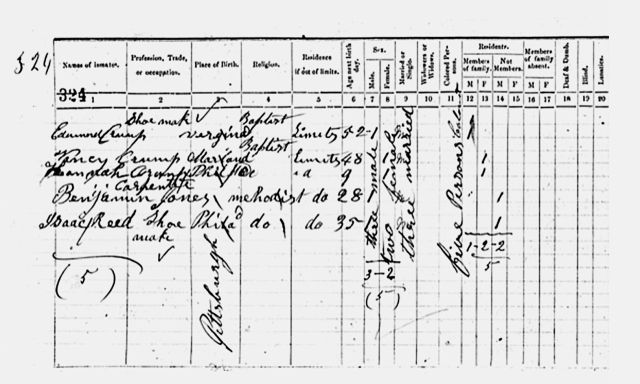 524
Names of inmates.
Profession, Trade, or occupation.
Place of Birth.
Religion.
Residence if out of limits.
Age next birth day.
Sex.
Male.
Female.
Married or Single.
Widowers or Widows.
Colored Persons.
Residents.
Members of family.
Not Members.
M F M F
Members of family absent.
M F
Deaf & Dumb.
Blind.
Lunatics.
324
1 2 3 4 5 6 7 8 9 10 11 12 13 14 15 16 17 18 19 20
Shoe mak Baptist
Edmond Crump Limits 52 1
Baptist
Nancy Crump Limits 48 1 1
9 1 1
Carpenter
Benjamin Jones methodist do 28 1 1
Isaac Reed Shoe Philad do do 35 1 1
make
Pittsburgh
three male
two female
three married
five Persons
1 - 2 - 2
5
3 - 2
(5)
(5)